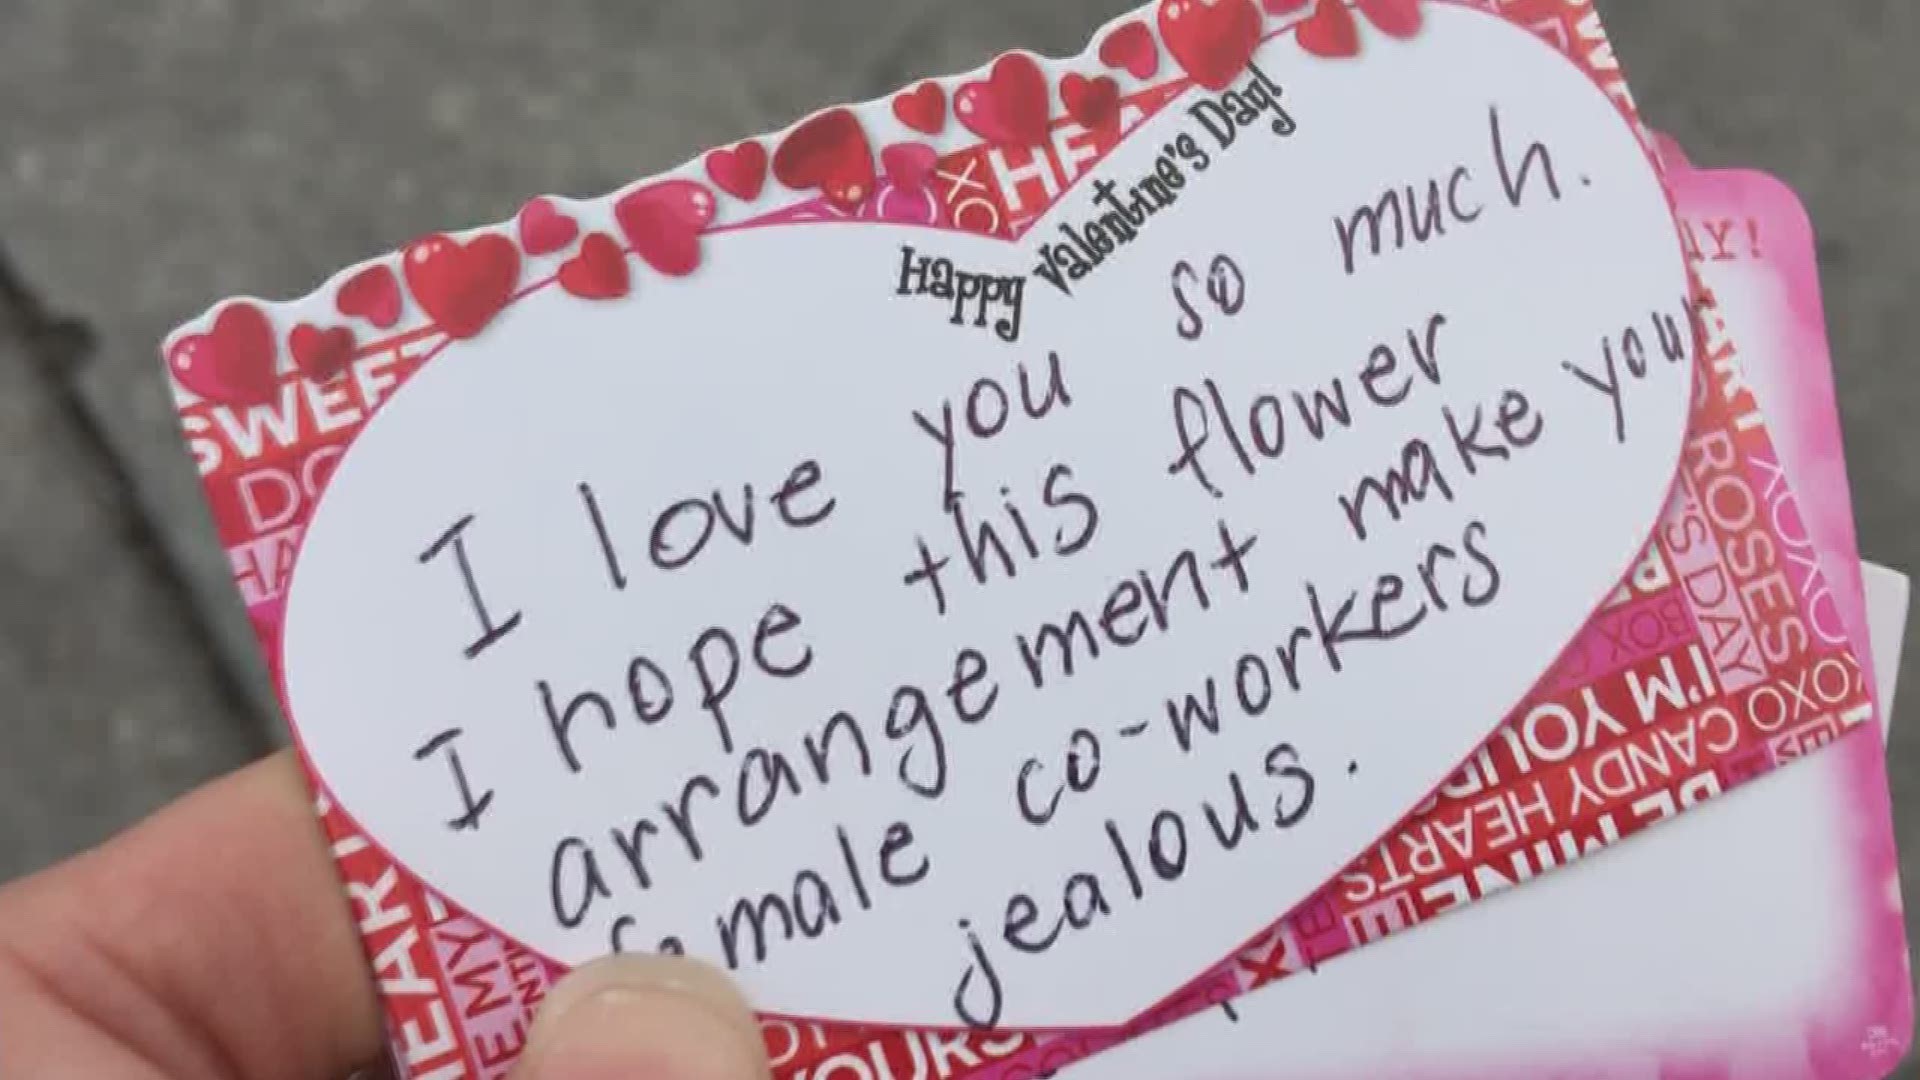 Happy Valentine's Day!
I love you so much.
I hope this flower
arrangement make your
female co-workers
jealous.
SWEET
XO
HEA
HEART
YOURS
ROSES
'S DAY
XOXO
XOXO
I'M YOURS
CANDY HEARTS
BE MINE